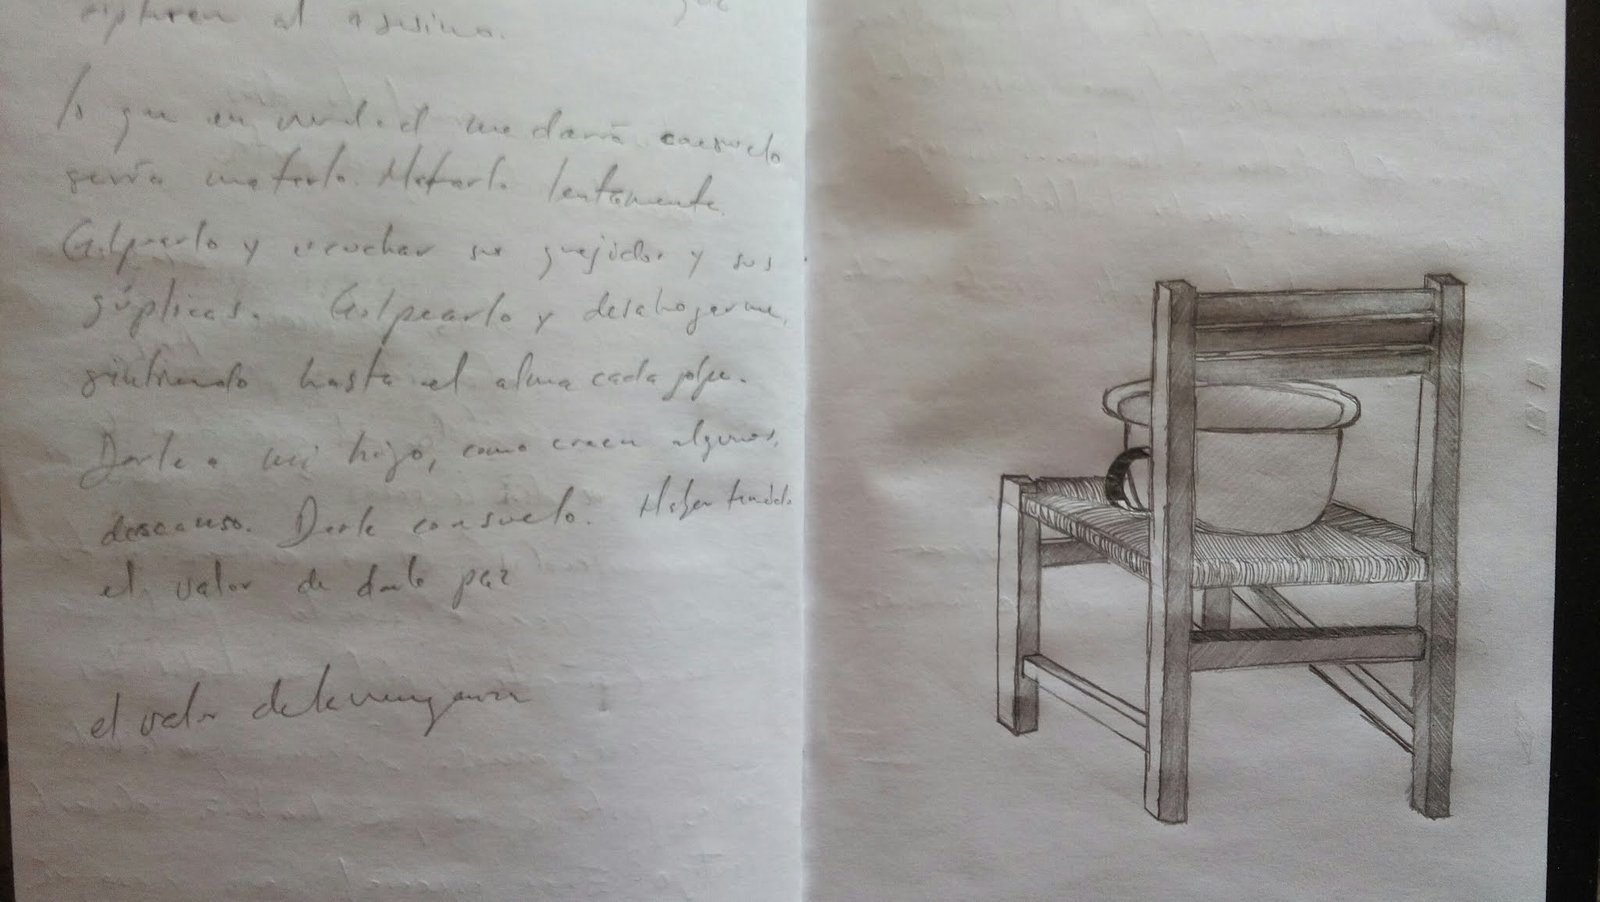 capturen al asesino. que
lo que en verdad me daría consuelo
sería matarlo. Matarlo lentamente.
Golpearlo y escuchar sus quejidos y sus
súplicas. Golpearlo y desahogarme,
sintiendo hasta el alma cada golpe.
Darle a mi hijo, como creen algunos,
descanso. Darle consuelo. Haber tenido
el valor de darle paz
el valor de la venganza